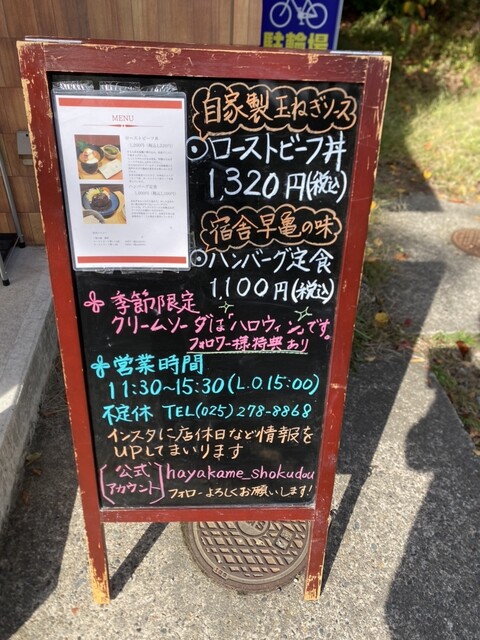 駐輪場
MENU
ローストビーフ丼
ハンバーグ定食
自家製玉ねぎソース
◎ローストビーフ丼
1,320円(税込)
宿舎早亀の味
◎ハンバーグ定食
1,100円(税込)
季節限定
クリームソーダは「ハロウィン」です。
フォロワー様特典あり
営業時間
11:30~15:30(L.O.15:00)
不定休 TEL(025)278-8868
インスタに店休日など情報を
UPしてまいります
公式アカウント hayakame_shokudou
フォローよろしくお願いします!